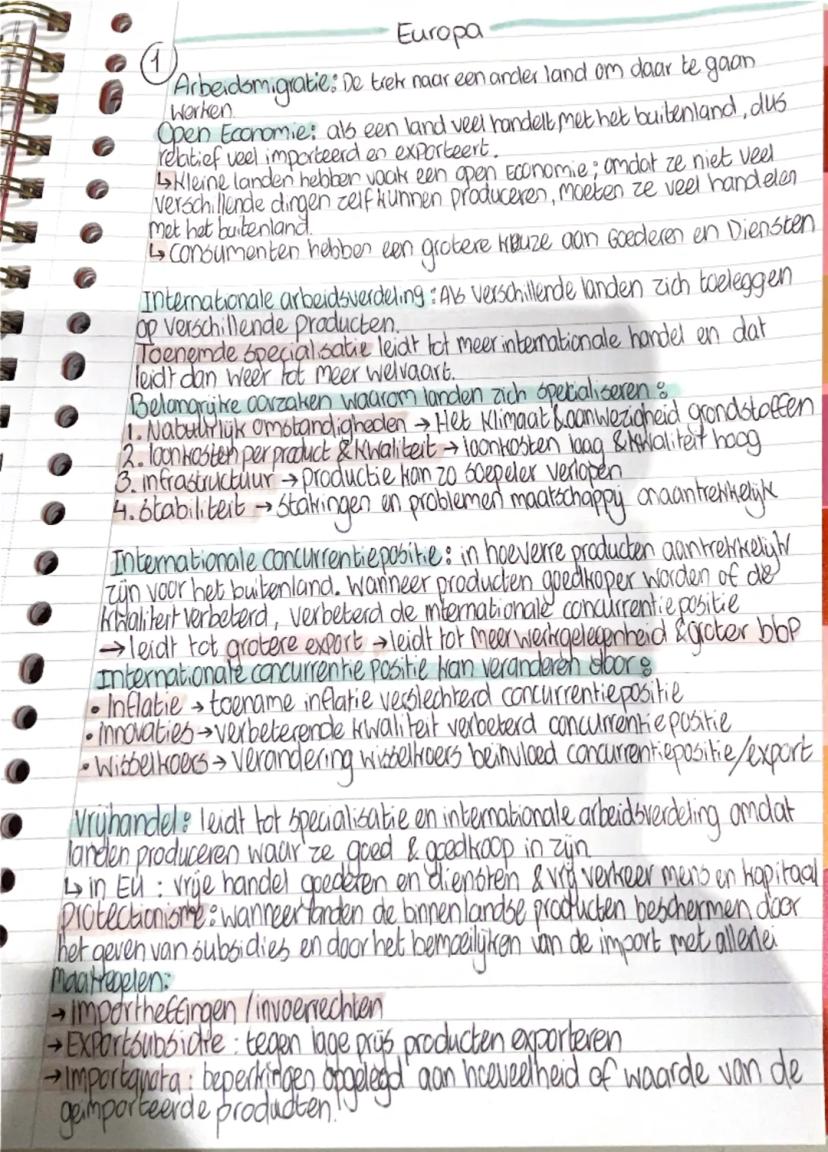 Europa
① Arbeidsmigratie: De trek naar een ander land om daar te gaan
werken
Open Economie: als een land veel handelt met het buitenland, dus
relatief veel importeerd en exporteert.
↳ Kleine landen hebben vaak een open Economie; omdat ze niet veel
verschillende dingen zelf kunnen produceren, moeten ze veel handelen
met het buitenland.
↳ Consumenten hebben een grotere keuze aan Goederen en Diensten
Internationale arbeidsverdeling: Als verschillende landen zich toeleggen
op verschillende producten.
Toenemde specialisatie leidt tot meer internationale handel en dat
leidt dan weer tot meer welvaart.
Belangrijke oorzaken waarom landen zich specialiseren:
1. Natuurlijk omstandigheden → Het klimaat & aanwezigheid grondstoffen
2. loonkosten per product & kwaliteit → loonkosten laag & kwaliteit hoog
3. infrastructuur → productie kan zo soepeler verlopen
4. stabiliteit → Stakingen en problemen maatschappij onaantrekkelijk
Internationale concurrentiepositie: in hoeverre producten aantrekkelijk
zijn voor het buitenland. Wanneer producten goedkoper worden of de
kwaliteit verbeterd, verbeterd de internationale concurrentiepositie
→ leidt tot grotere export → leidt tot meer werkgelegenheid & groter bbp
Internationale concurrentie positie kan veranderen door:
• Inflatie → toename inflatie verslechterd concurrentiepositie
• Innovaties → verbeterende kwaliteit verbeterd concurrentie positie
• Wisselkoers → verandering wisselkoers beinvloed concurrentiepositie/export
Vrijhandel: leidt tot specialisatie en internationale arbeidsverdeling omdat
landen produceren waar ze goed & goedkoop in zijn
↳ in EU: vrije handel goederen en diensten & vrij verkeer mens en kapitaal
Protectionisme: wanneer landen de binnenlandse producten beschermen door
het geven van subsidies en door het bemoeilijken van de import met allerlei
Maatregelen:
→ Importheffingen / invoerrechten
→ Exportsubsidie: tegen lage prijs producten exporteren
→ Importquota: beperkingen opgelegd aan hoeveelheid of waarde van de
geïmporteerde producten.